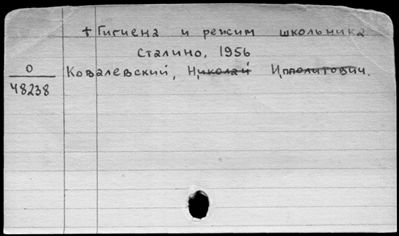 + Гигиена и режим школьника
Сталино, 1956
О
48238
Ковалевский, Николай Ипполитович.